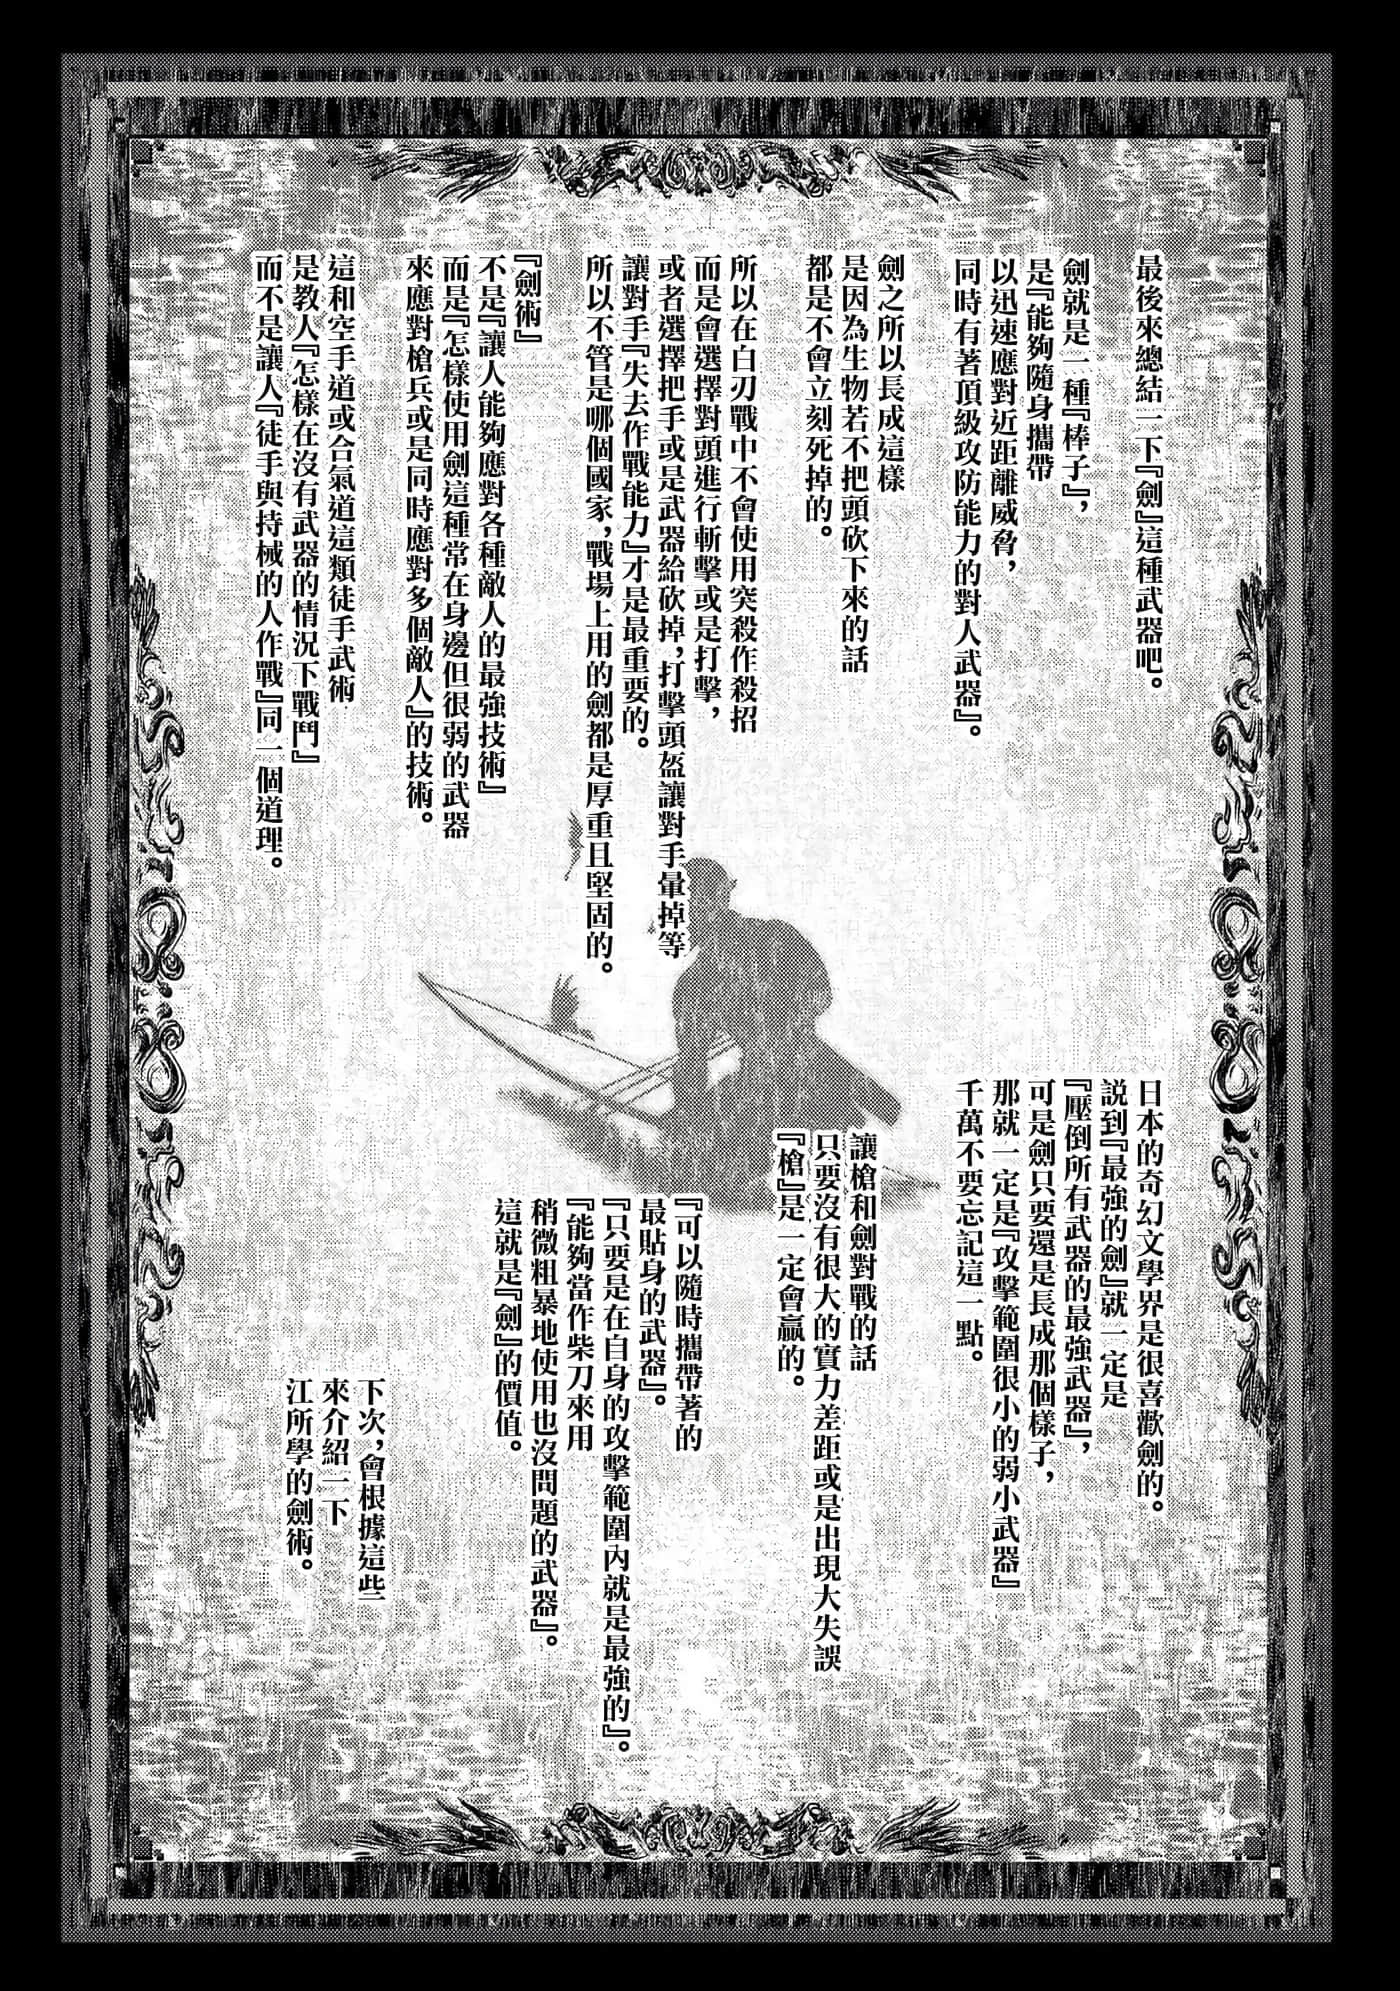 最後來總結一下『劍』這種武器吧。
劍就是一種『棒子』，
是『能夠隨身攜帶
以迅速應對近距離威脅，
同時有著頂級攻防能力的對人武器』。
劍之所以長成這樣
是因為生物若不把頭砍下來的話
都是不會立刻死掉的。
所以在白刃戰中不會使用突殺作殺招
而是會選擇對頭進行斬擊或是打擊，
或者選擇把手或是武器給砍掉，打擊頭盔讓對手暈掉等
讓對手『失去作戰能力』才是最重要的。
所以不管是哪個國家，戰場上用的劍都是厚重且堅固的。
『劍術』
不是『讓人能夠應對各種敵人的最強技術』
而是『怎樣使用劍這種常在身邊但很弱的武器
來應對槍兵或是同時應對多個敵人』的技術。
這和空手道或合氣道這類徒手武術
是教人『怎樣在沒有武器的情況下戰鬥』
而不是讓人『徒手與持械的人作戰』同一個道理。
日本的奇幻文學界是很喜歡劍的。
説到『最強的劍』就一定是
『壓倒所有武器的最強武器』，
可是劍只要還是長成那個樣子，
那就一定是『攻擊範圍很小的弱小武器』
千萬不要忘記這一點。
讓槍和劍對戰的話
只要沒有很大的實力差距或是出現大失誤
『槍』是一定會贏的。
『可以隨時攜帶著的
最貼身的武器』。
『只要是在自身的攻擊範圍內就是最強的』。
『能夠當作柴刀來用
稍微粗暴地使用也沒問題的武器』。
這就是『劍』的價值。
下次，會根據這些
來介紹一下
江所學的劍術。